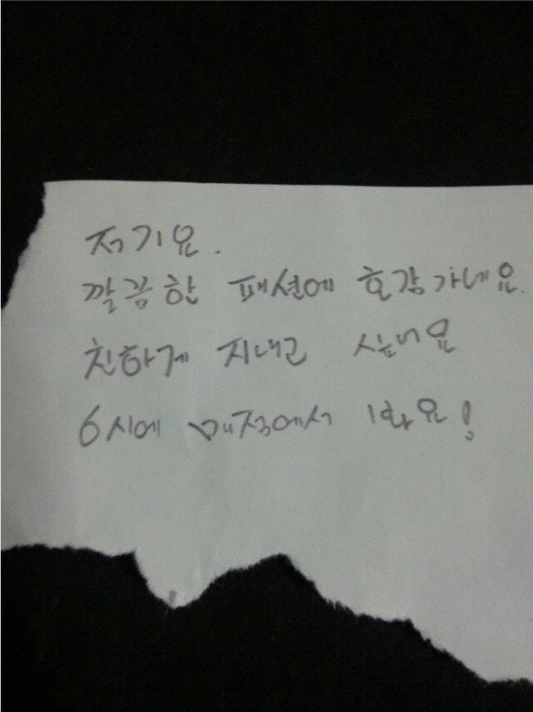 저기요.
깔끔한 패션에 호감가네요.
친하게 지내고 싶네요
6시에 매점에서 봐요!